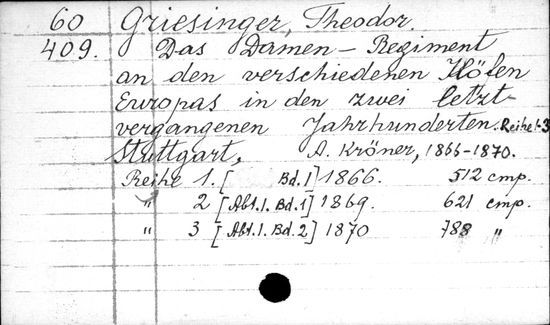 60 Griesinger, Theodor.
409. Das Damen-Regiment
an den verschiedenen Höfen
Europas in den zwei letzt-
vergangenen Jahrhunderten. Reihe 1-3
Stuttgart, A. Kröner, 1866-1870.
Reihe 1. [ Bd. 1] 1866. 512 стр.
" 2 [Abt. 1. Bd. 1] 1869. 621 стр.
" 3 [Abt. 1. Bd. 2] 1870 788 "